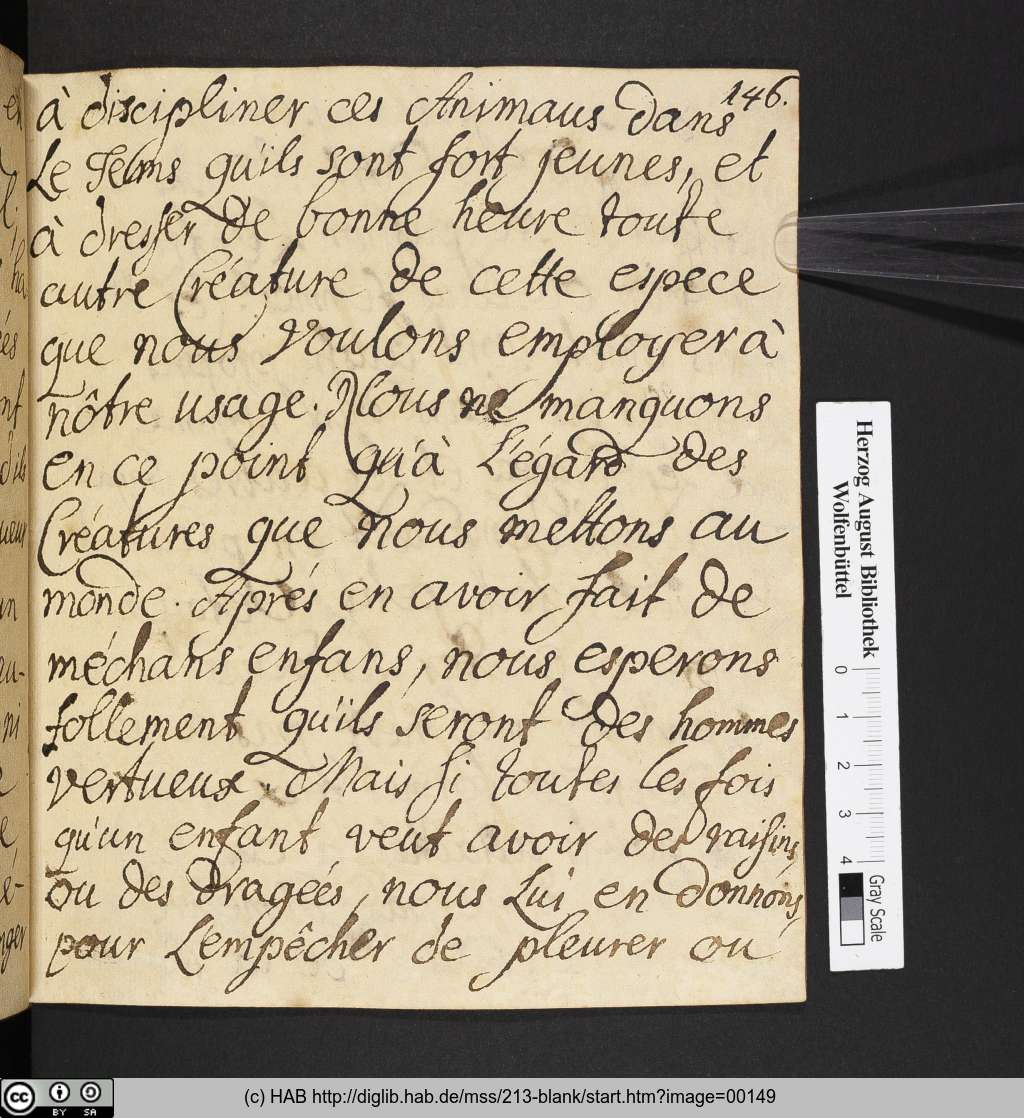 146.
à discipliner ces Animaus dans
Le Tems qu'ils sont fort jeunes, et
à dresser de bonne heure toute
autre Créature de cette espece
que nous voulons employer à
nôtre usage. Nous ne manquons
en ce point qu'à L'égard des
Créatures que nous mettons au
monde. Aprés en avoir fait de
méchans enfans, nous esperons
follement qu'ils seront des hommes
vertueux. Mais si toutes les fois
qu'un enfant veut avoir des raisins
ou des dragées, nous Lui en donnons,
pour L'empêcher de pleurer ou
Herzog August Bibliothek
Wolfenbüttel
0 1 2 3 4
Gray Scale
cc BY SA
(c) HAB http://diglib.hab.de/mss/213-blank/start.htm?image=00149